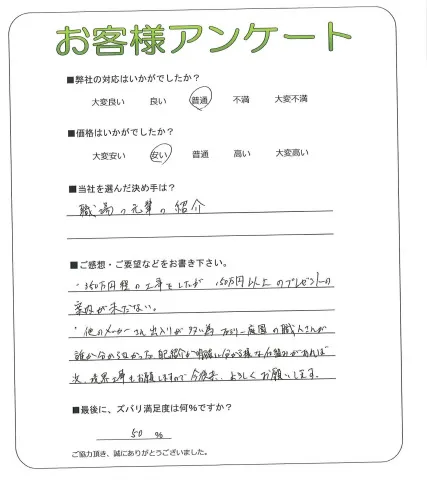 お客様アンケート
■弊社の対応はいかがでしたか？
大変良い 良い 普通 不満 大変不満
■価格はいかがでしたか？
大変安い 安い 普通 高い 大変高い
■当社を選んだ決め手は？
職場の先輩の紹介
■ご感想・ご要望などをお書き下さい。
・350万円程の工事をしたが 150万円以上のプレゼントの
案内が来ない。
・他のメーカーさん出入りが多い為 ファミリー庭園の職人さんが
誰か分からなかった。 明確に分かる様な仕組みがあれば
次、 工事もお願いしますので今後共、よろしくお願いします。
■最後に、ズバリ満足度は何％ですか？
50 ％
ご協力頂き、誠にありがとうございました。